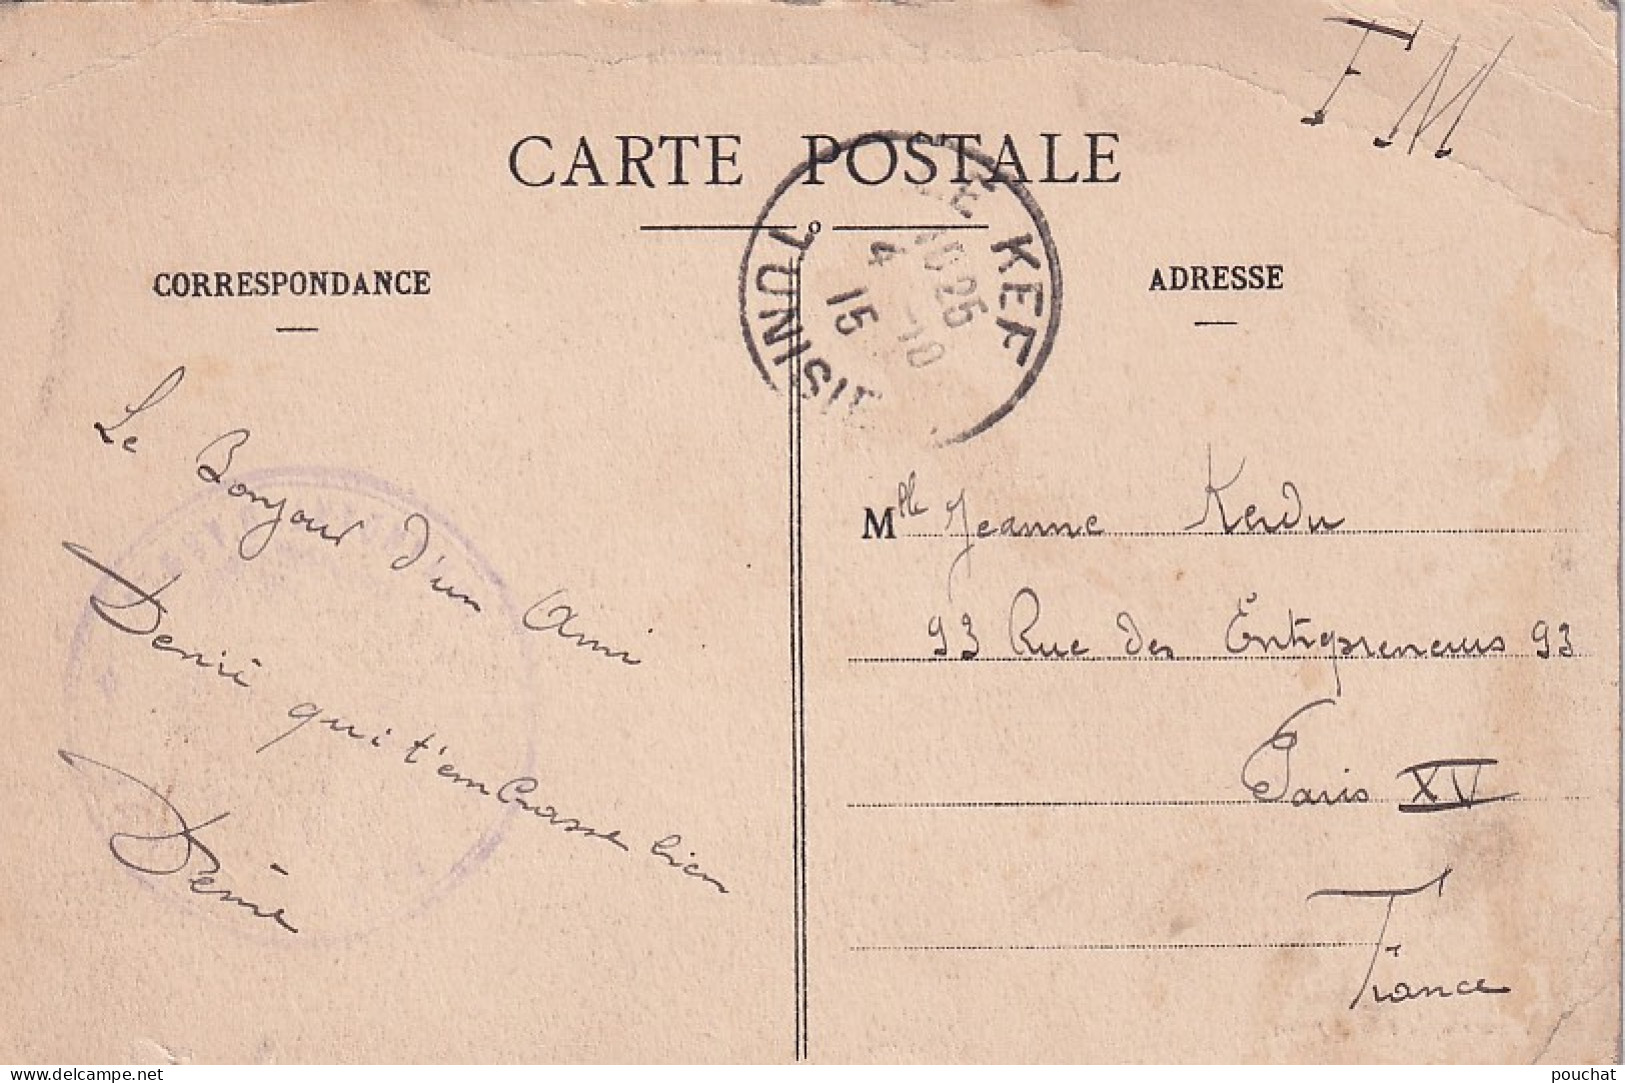 FM
CARTE POSTALE
LE KEF
TUNISIE
10 25
4 -10
15
CORRESPONDANCE
ADRESSE
Le Bonjour d'un Ami
qui t'embrasse bien
Mlle Jeanne Kerdu
93 Rue des Entrepreneurs 93
Paris XV
France
delcampe.net
pouchat